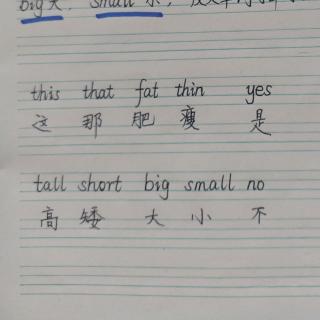 big大. small 小,
this that fat thin yes
这 那 肥 瘦 是
tall short big small no
高 矮 大 小 不